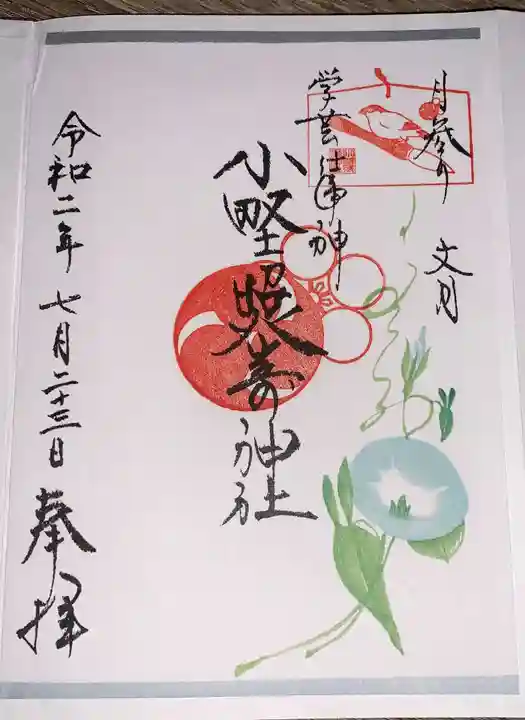 月参り
文月
学芸仕事神
小野照崎神社
令和二年七月二十三日
奉拝